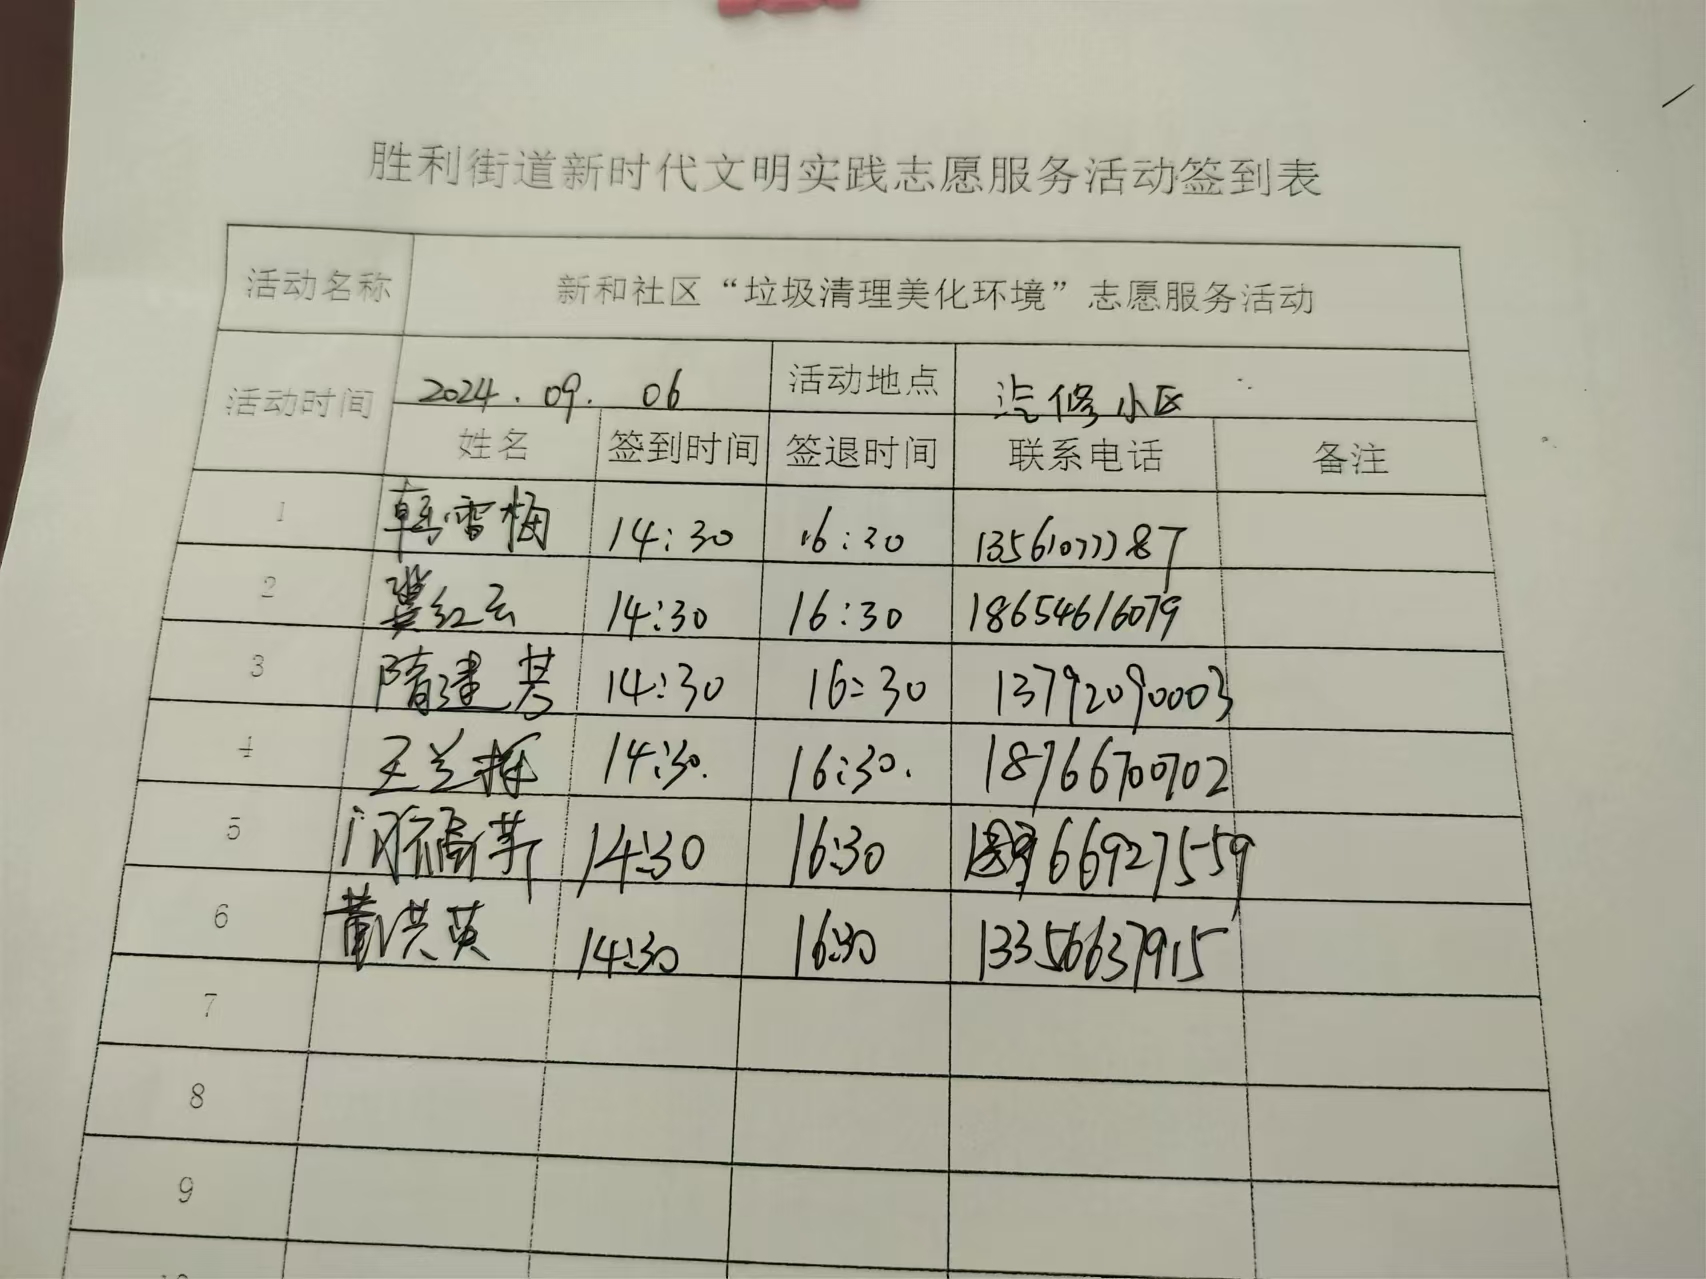 胜利街道新时代文明实践志愿服务活动签到表
活动名称 新和社区“垃圾清理美化环境”志愿服务活动
活动时间 2024.09.06 活动地点 汽修小区
姓名 签到时间 签退时间 联系电话 备注
1 韩雪梅 14:30 16:30 13561077287
2 冀红云 14:30 16:30 18654616079
3 隋建芳 14:30 16:30 13792090003
4 王兰 14:30. 16:30. 18766700702
5 闫福 14:30 16:30 66927559
6 董洪英 14:30 16:30 13356637915
7
8
9